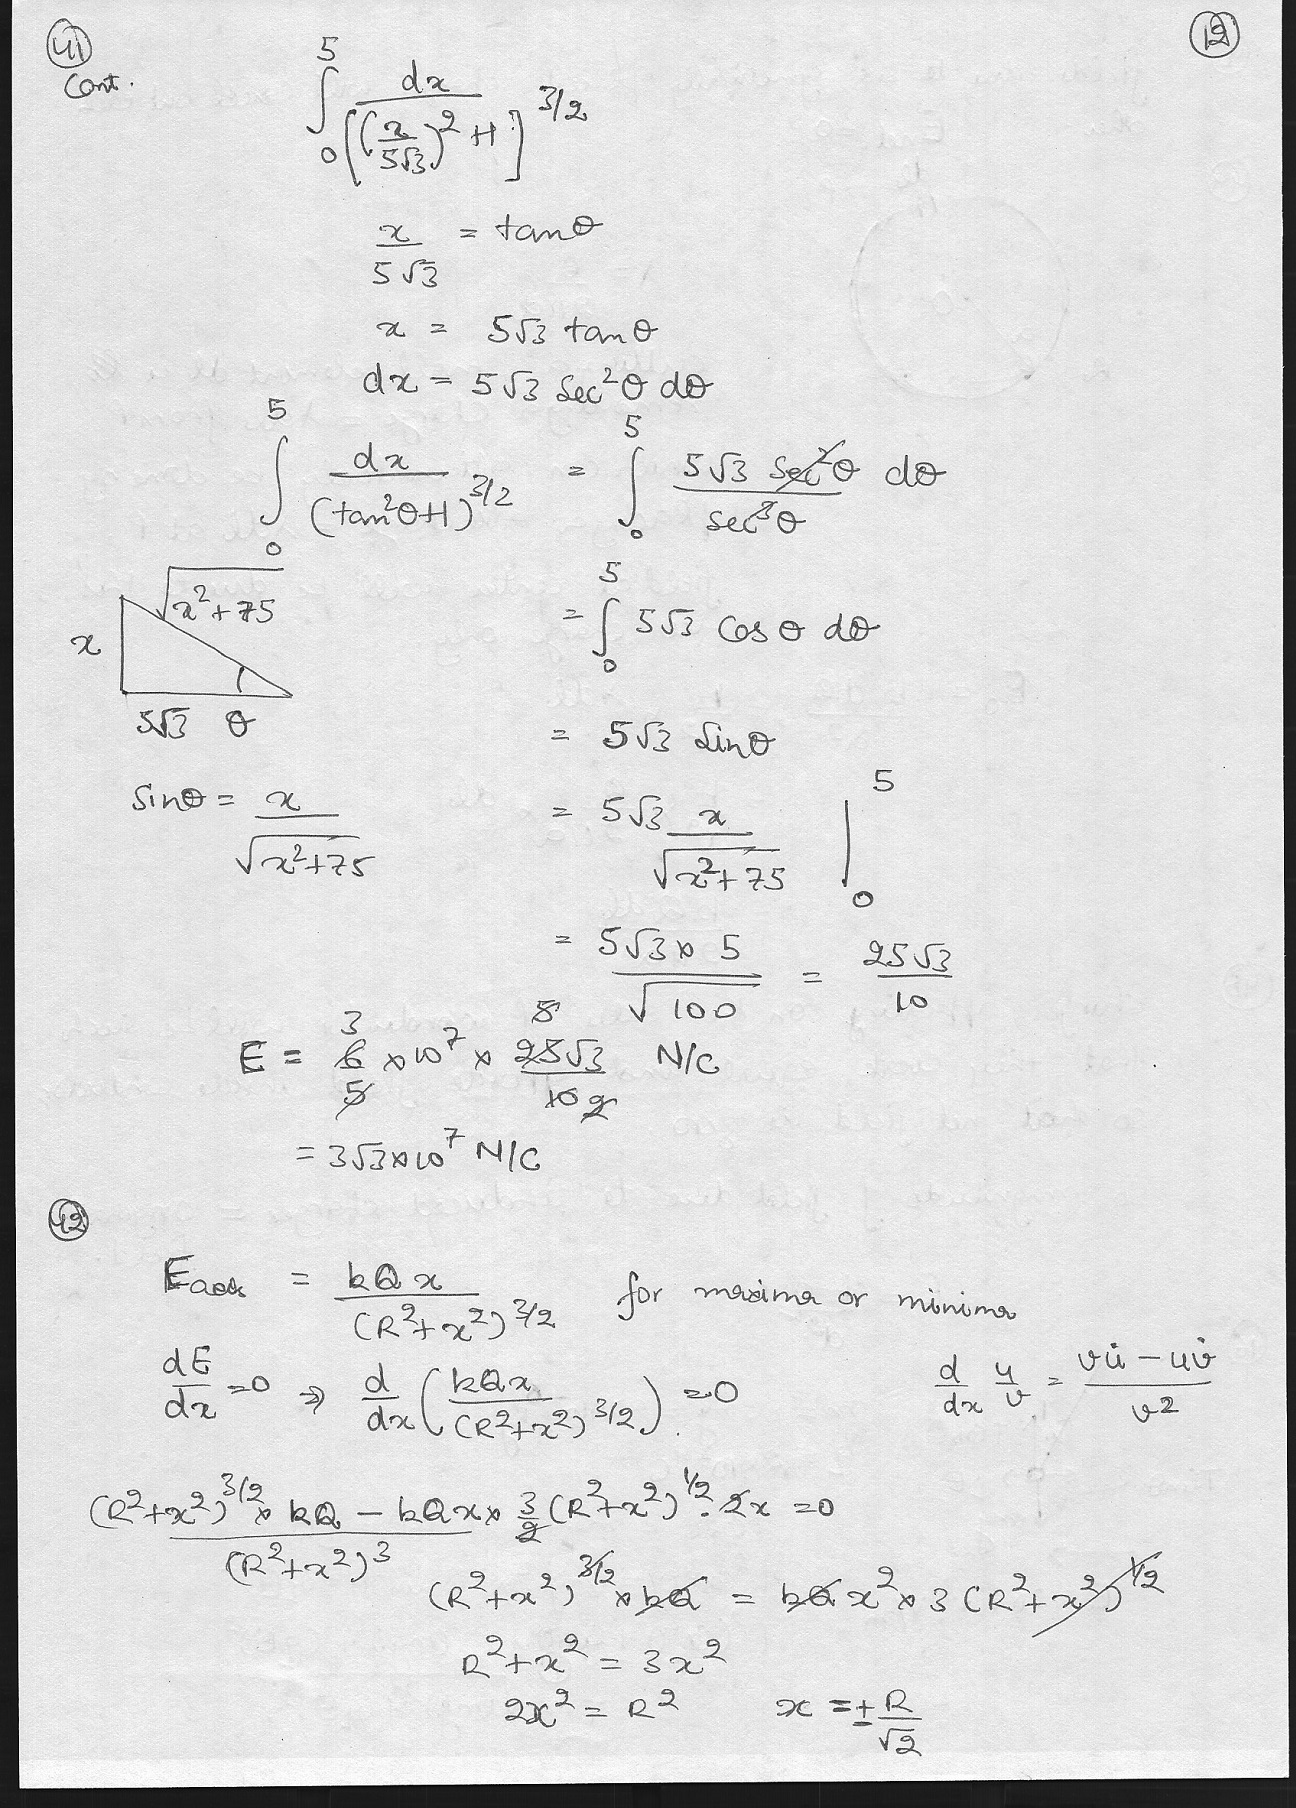 41 12
Cont.
∫₀⁵ dx / [(x/5√3)² + 1]^3/2
x/5√3 = tanθ
x = 5√3 tanθ
dx = 5√3 Sec²θ dθ
∫₀⁵ dx/(tan²θ+1)^3/2 = ∫₀⁵ 5√3 Sec²θ dθ / Sec³θ
√x²+75
x
5√3 θ
= ∫₀⁵ 5√3 Cosθ dθ
= 5√3 Sinθ
Sinθ = x/√(x²+75) = 5√3 x/√(x²+75) |₀⁵
= 5√3 × 5/√100 = 25√3/10
E = 6/5 × 10⁷ × 25√3/10 N/C
3 5 2
= 3√3 × 10⁷ N/C
42
E = kQx/(R²+x²)^3/2 for maxima or minima
dE/dx = 0 ⇒ d/dx (kQx/(R²+x²)^3/2) = 0 d/dx u/v = (vu̇ − uv̇)/v²
((R²+x²)^3/2 × kQ − kQx × 3/2 (R²+x²)^1/2 · 2x)/(R²+x²)³ = 0
(R²+x²)^3/2 × kQ = kQ x² × 3 (R²+x²)^1/2
R²+x² = 3x²
2x² = R² x = ± R/√2